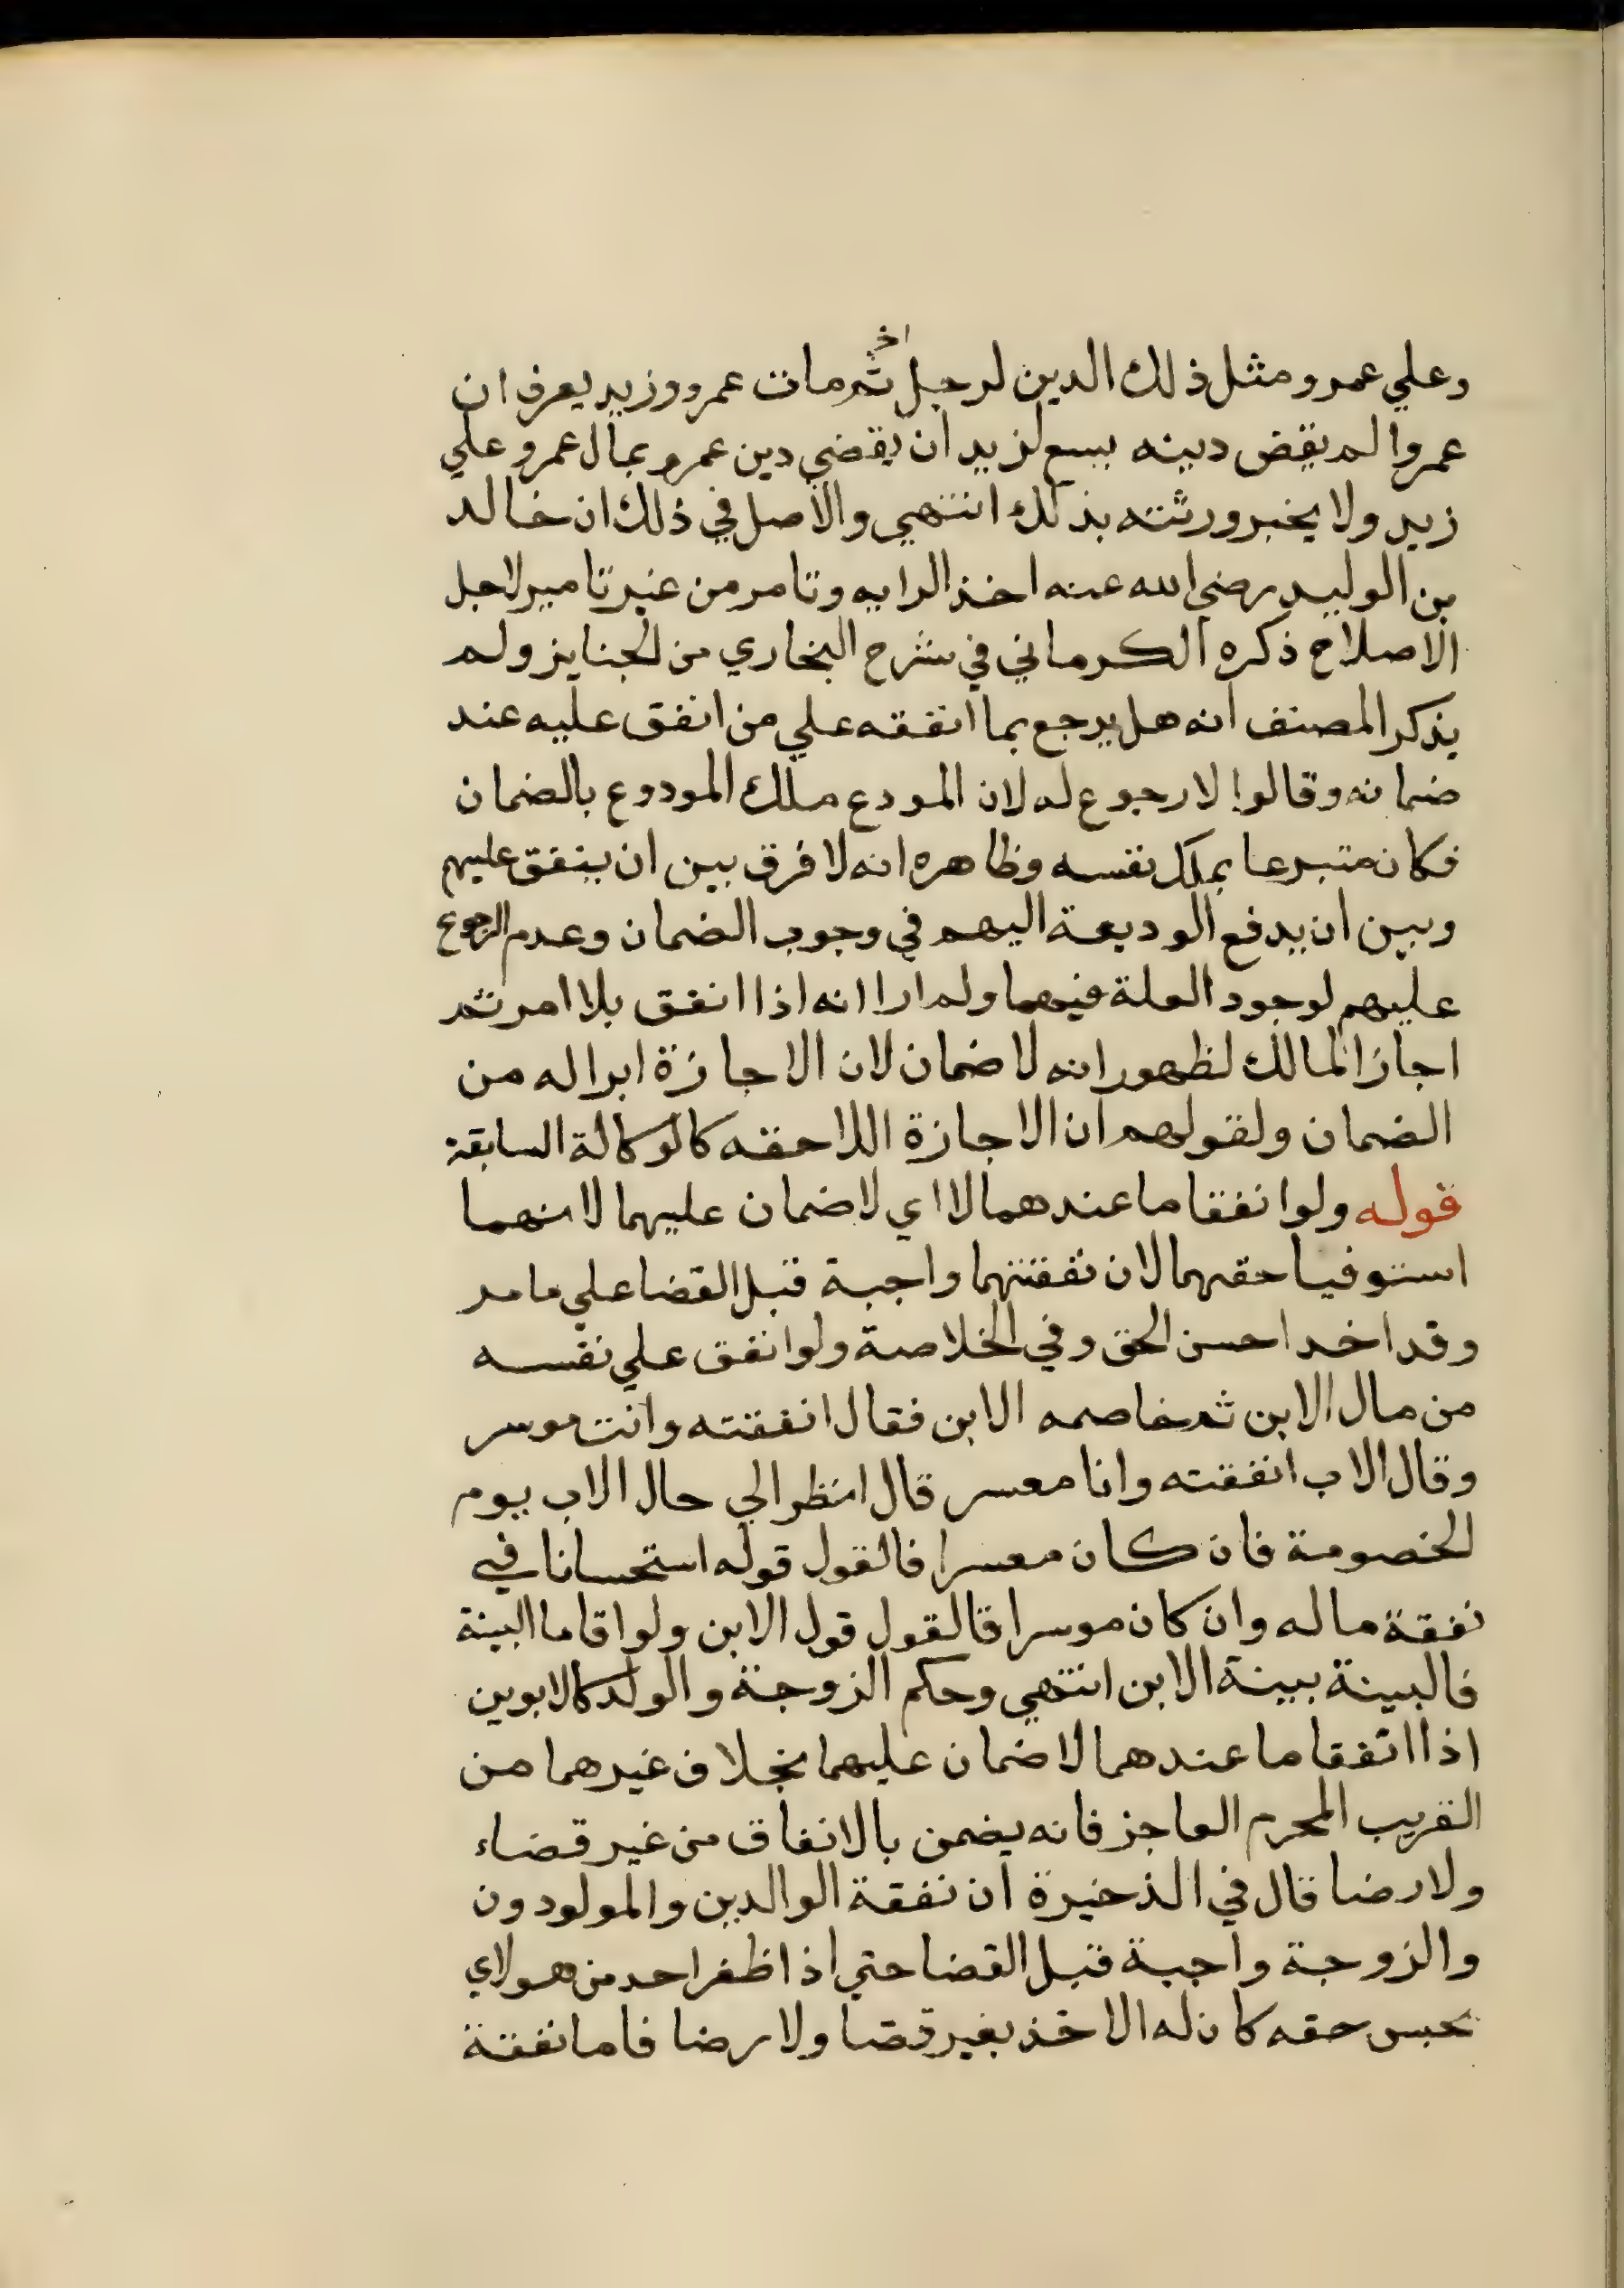 وعلي عمرو مثل ذلك الدين لرجل اخر ثم مات عمرو وزيد يعرف ان
عمروا لم يقض دينه يسع لزيد ان يقضي دين عمرو بمال عمرو علي
زيد ولا يخبر ورثته بذلك انتهي والاصل في ذلك ان خالد
بن الوليد رضي الله عنه اخذ الرايه وتامر من غير تامير لاجل
الاصلاح ذكره الكرماني في شرح البخاري من الجنايز ولم
يذكر المصنف انه هل يرجع بما انفقه علي من انفق عليه عند
ضمانه وقالوا لا رجوع له لان المودع ملك المودوع بالضمان
فكان متبرعا بملك نفسه وظاهره انه لا فرق بين ان ينفق عليهم
وبين ان يدفع الوديعة اليهم في وجوب الضمان وعدم الرجوع
عليهم لوجود العلة فيهما ولم ارا انه اذا انفق بلا امر ثم
اجاز المالك لظهور انه لا ضمان لان الاجازة ابرا له من
الضمان ولقولهم ان الاجازة اللاحقه كالوكالة السابقة
قوله ولو انفقا ما عندهما لا اي لا ضمان عليهما لانهما
استوفيا حقهما لان نفقتهما واجبة قبل القضا علي ما مر
وقد اخدا حسن الحق وفي الخلاصة ولو انفق علي نفسه
من مال الابن ثم خاصمه الابن فقال انفقته وانت موسر
وقال الاب انفقته وانا معسر قال انظر الي حال الاب يوم
الخصومة فان كان معسرا فالقول قوله استحسانا في
نفقة ماله وان كان موسرا فالقول قول الابن ولو اقاما البينة
فالبينة بينة الابن انتهي وحكم الزوجة والولد كالابوين
اذا انفقا ما عندهما لا ضمان عليهما بخلاف غيرهما من
القريب المحرم العاجز فانه يضمن بالانفاق من غير قضاء
ولا رضا قال في الذخيرة ان نفقة الوالدين والمولودون
والزوجة واجبة قبل القضا حتي اذا ظفر احد من هولاي
بحبس حقه كان له الاخذ بغير قضا ولا رضا فاما نفقة